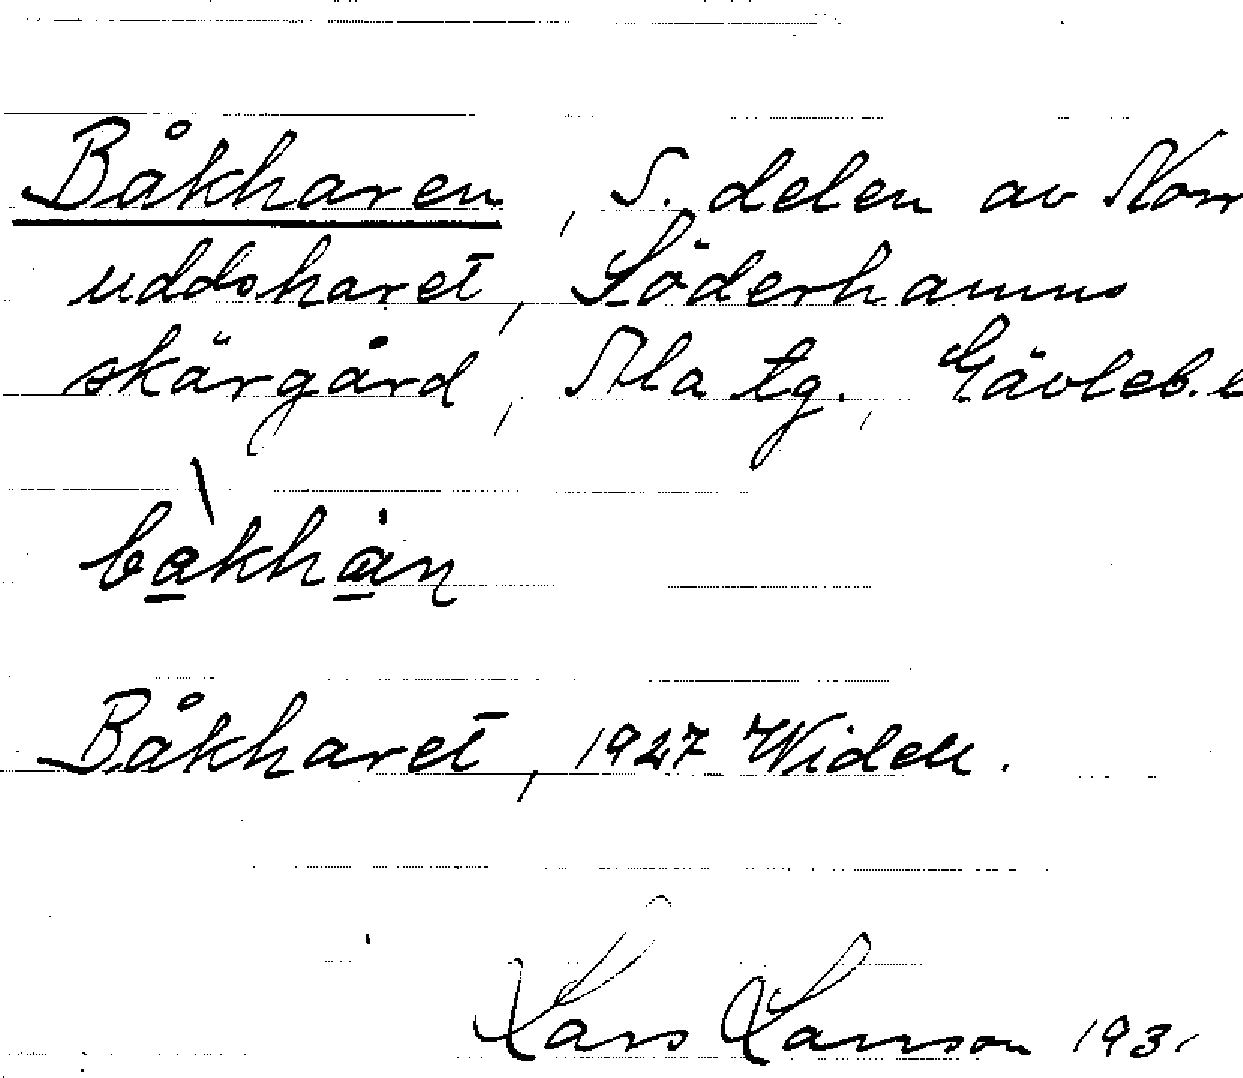 Båkharen, S. delen av Norr
uddsharet, Söderhamns
skärgård, Ala tg., Gävleb. l
Båkharet, 1927 Widell.
Lars Larsson 1931